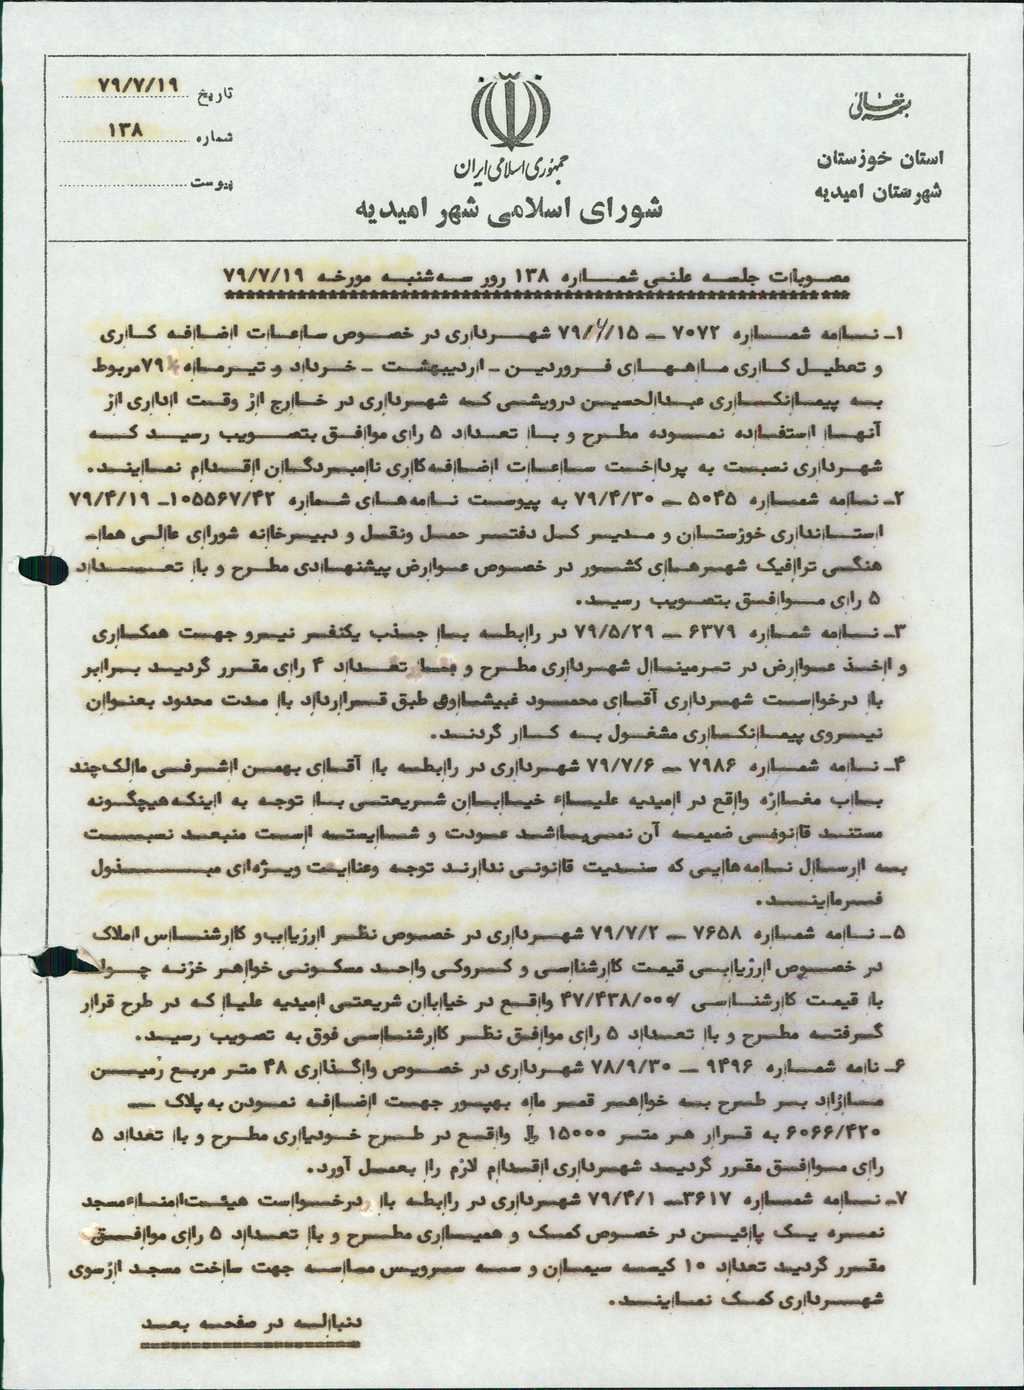 بسمه تعالی
استان خوزستان
شهرستان امیدیه
جمهوری اسلامی ایران
شورای اسلامی شهر امیدیه
تاریخ ۷۹/۷/۱۹
شماره ۱۳۸
پیوست
مصوبات جلسه علنی شماره ۱۳۸ روز سه شنبه مورخه ۷۹/۷/۱۹
۱ـ نامه شماره ۷۰۷۲ ـ ۷۹/۶/۱۵ شهرداری در خصوص ساعات اضافه کاری
و تعطیل کاری ماههای فروردین ـ اردیبهشت ـ خرداد و تیرماه ۷۹ مربوط
به پیمانکاری عبدالحسین درویشی که شهرداری در خارج از وقت اداری از
آنها استفاده نموده مطرح و با تعداد ۵ رای موافق بتصویب رسید که
شهرداری نسبت به پرداخت ساعات اضافه کاری نامبردگان اقدام نمایند.
۲ـ نامه شماره ۵۰۴۵ ـ ۷۹/۴/۳۰ به پیوست نامه های شماره ۱۰۵۵۶۷/۴۲ـ ۷۹/۴/۱۹
استانداری خوزستان و مدیر کل دفتر حمل ونقل و دبیرخانه شورای عالی هماـ
هنگی ترافیک شهرهای کشور در خصوص عوارض پیشنهادی مطرح و با تعداد
۵ رای موافق بتصویب رسید.
۳ـ نامه شماره ۶۳۷۹ ـ ۷۹/۵/۲۹ در رابطه با جذب یکنفر نیرو جهت همکاری
و اخذ عوارض در ترمینال شهرداری مطرح و با تعداد ۴ رای مقرر گردید برابر
با درخواست شهرداری آقای محمود غبیشاوی طبق قرارداد با مدت محدود بعنوان
نیروی پیمانکاری مشغول به کار گردند.
۴ـ نامه شماره ۷۹۸۶ ـ ۷۹/۷/۶ شهرداری در رابطه با آقای بهمن اشرفی مالک چند
باب مغازه واقع در امیدیه علیاء خیابان شریعتی با توجه به اینکه هیچگونه
مستند قانونی ضمیمه آن نمی باشد عودت و شایسته است منبعد نسبت
به ارسال نامه هایی که سندیت قانونی ندارند توجه وعنایت ویژه ای مبذول
فرمایند.
۵ـ نامه شماره ۷۶۵۸ ـ ۷۹/۷/۲ شهرداری در خصوص نظر ارزیاب و کارشناس املاک
در خصوص ارزیابی قیمت کارشناسی و کروکی واحد مسکونی خواهر خزنه
با قیمت کارشناسی ۴۷/۴۳۸/۰۰۰ واقع در خیابان شریعتی امیدیه علیا که در طرح قرار
گرفته مطرح و با تعداد ۵ رای موافق نظر کارشناسی فوق به تصویب رسید.
۶ـ نامه شماره ۹۴۹۶ ـ ۷۸/۹/۳۰ شهرداری در خصوص واگذاری ۴۸ متر مربع زمین
مازاد بر طرح به خواهر قمر ماه بهپور جهت اضافه نمودن به پلاک ـ
۶۰۶۶/۴۲۰ به قرار هر متر ۱۵۰۰۰ ریال واقع در طرح خودیاری مطرح و با تعداد ۵
رای موافق مقرر گردید شهرداری اقدام لازم را بعمل آورد.
۷ـ نامه شماره ۳۶۱۷ـ ۷۹/۴/۱ شهرداری در رابطه با درخواست هیئت امناء مسجد
نمره یک پائین در خصوص کمک و همیاری مطرح و با تعداد ۵ رای موافق
مقرر گردید تعداد ۱۰ کیسه سیمان و سه سرویس ماسه جهت ساخت مسجد از سوی
شهرداری کمک نمایند.
دنباله در صفحه بعد